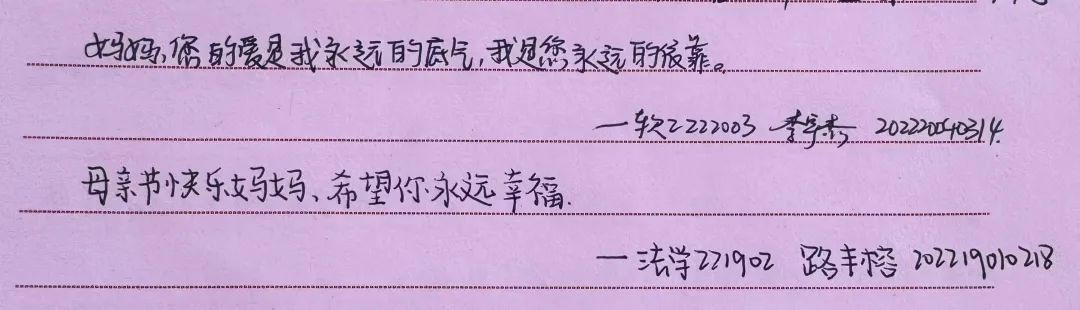 妈妈,您的爱是我永远的底气,我是您永远的依靠。
—软工222003 202220040314.
母亲节快乐妈妈、希望你永远幸福.
—法学221902 路丰榕 202219010218